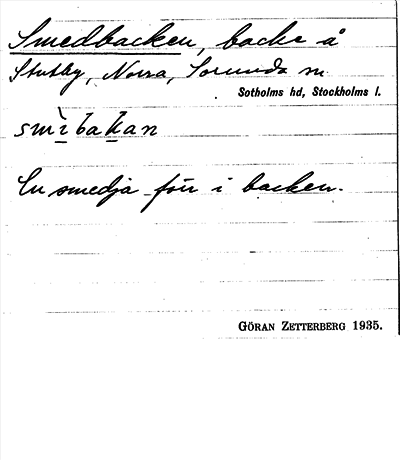 Smedbacken, backe å
Stutby, Norra, Sorunda sn
Sotholms hd, Stockholms l.
smìbakan
En smedja förr i backen.
GÖRAN ZETTERBERG 1935.